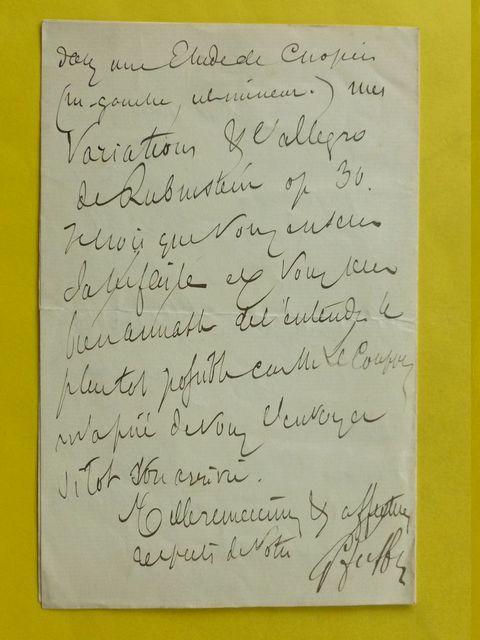 dans une Etude de Chopin
(m-gauche, ut mineur.) mes
Variations & l'allegro
de Rubinstein op 30.
Je crois que vous en serez
satisfaite et vous serez
bien aimable de l'entendre le
plutot possible car Mr Le Couppey
m'a prié de vous l'envoyer
sitot son arrivée.
Mille remerciements & affectueux
respects de votre